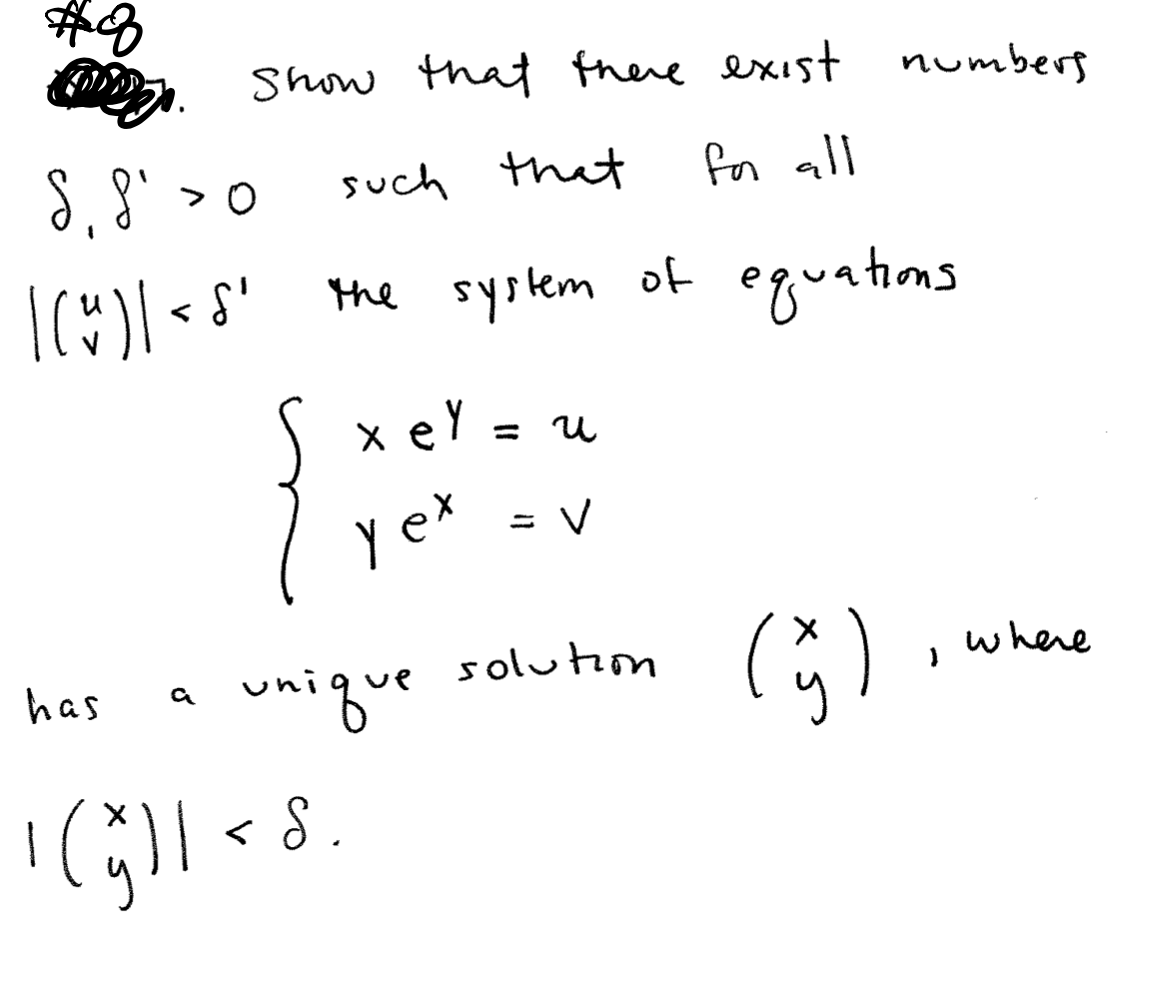 #8
. Show that there exist numbers
δ, δ' > 0 such that for all
|(u v)| < δ' the system of equations
{ x e^y = u
y e^x = v
has a unique solution (x y), where
|(x y)| < δ.